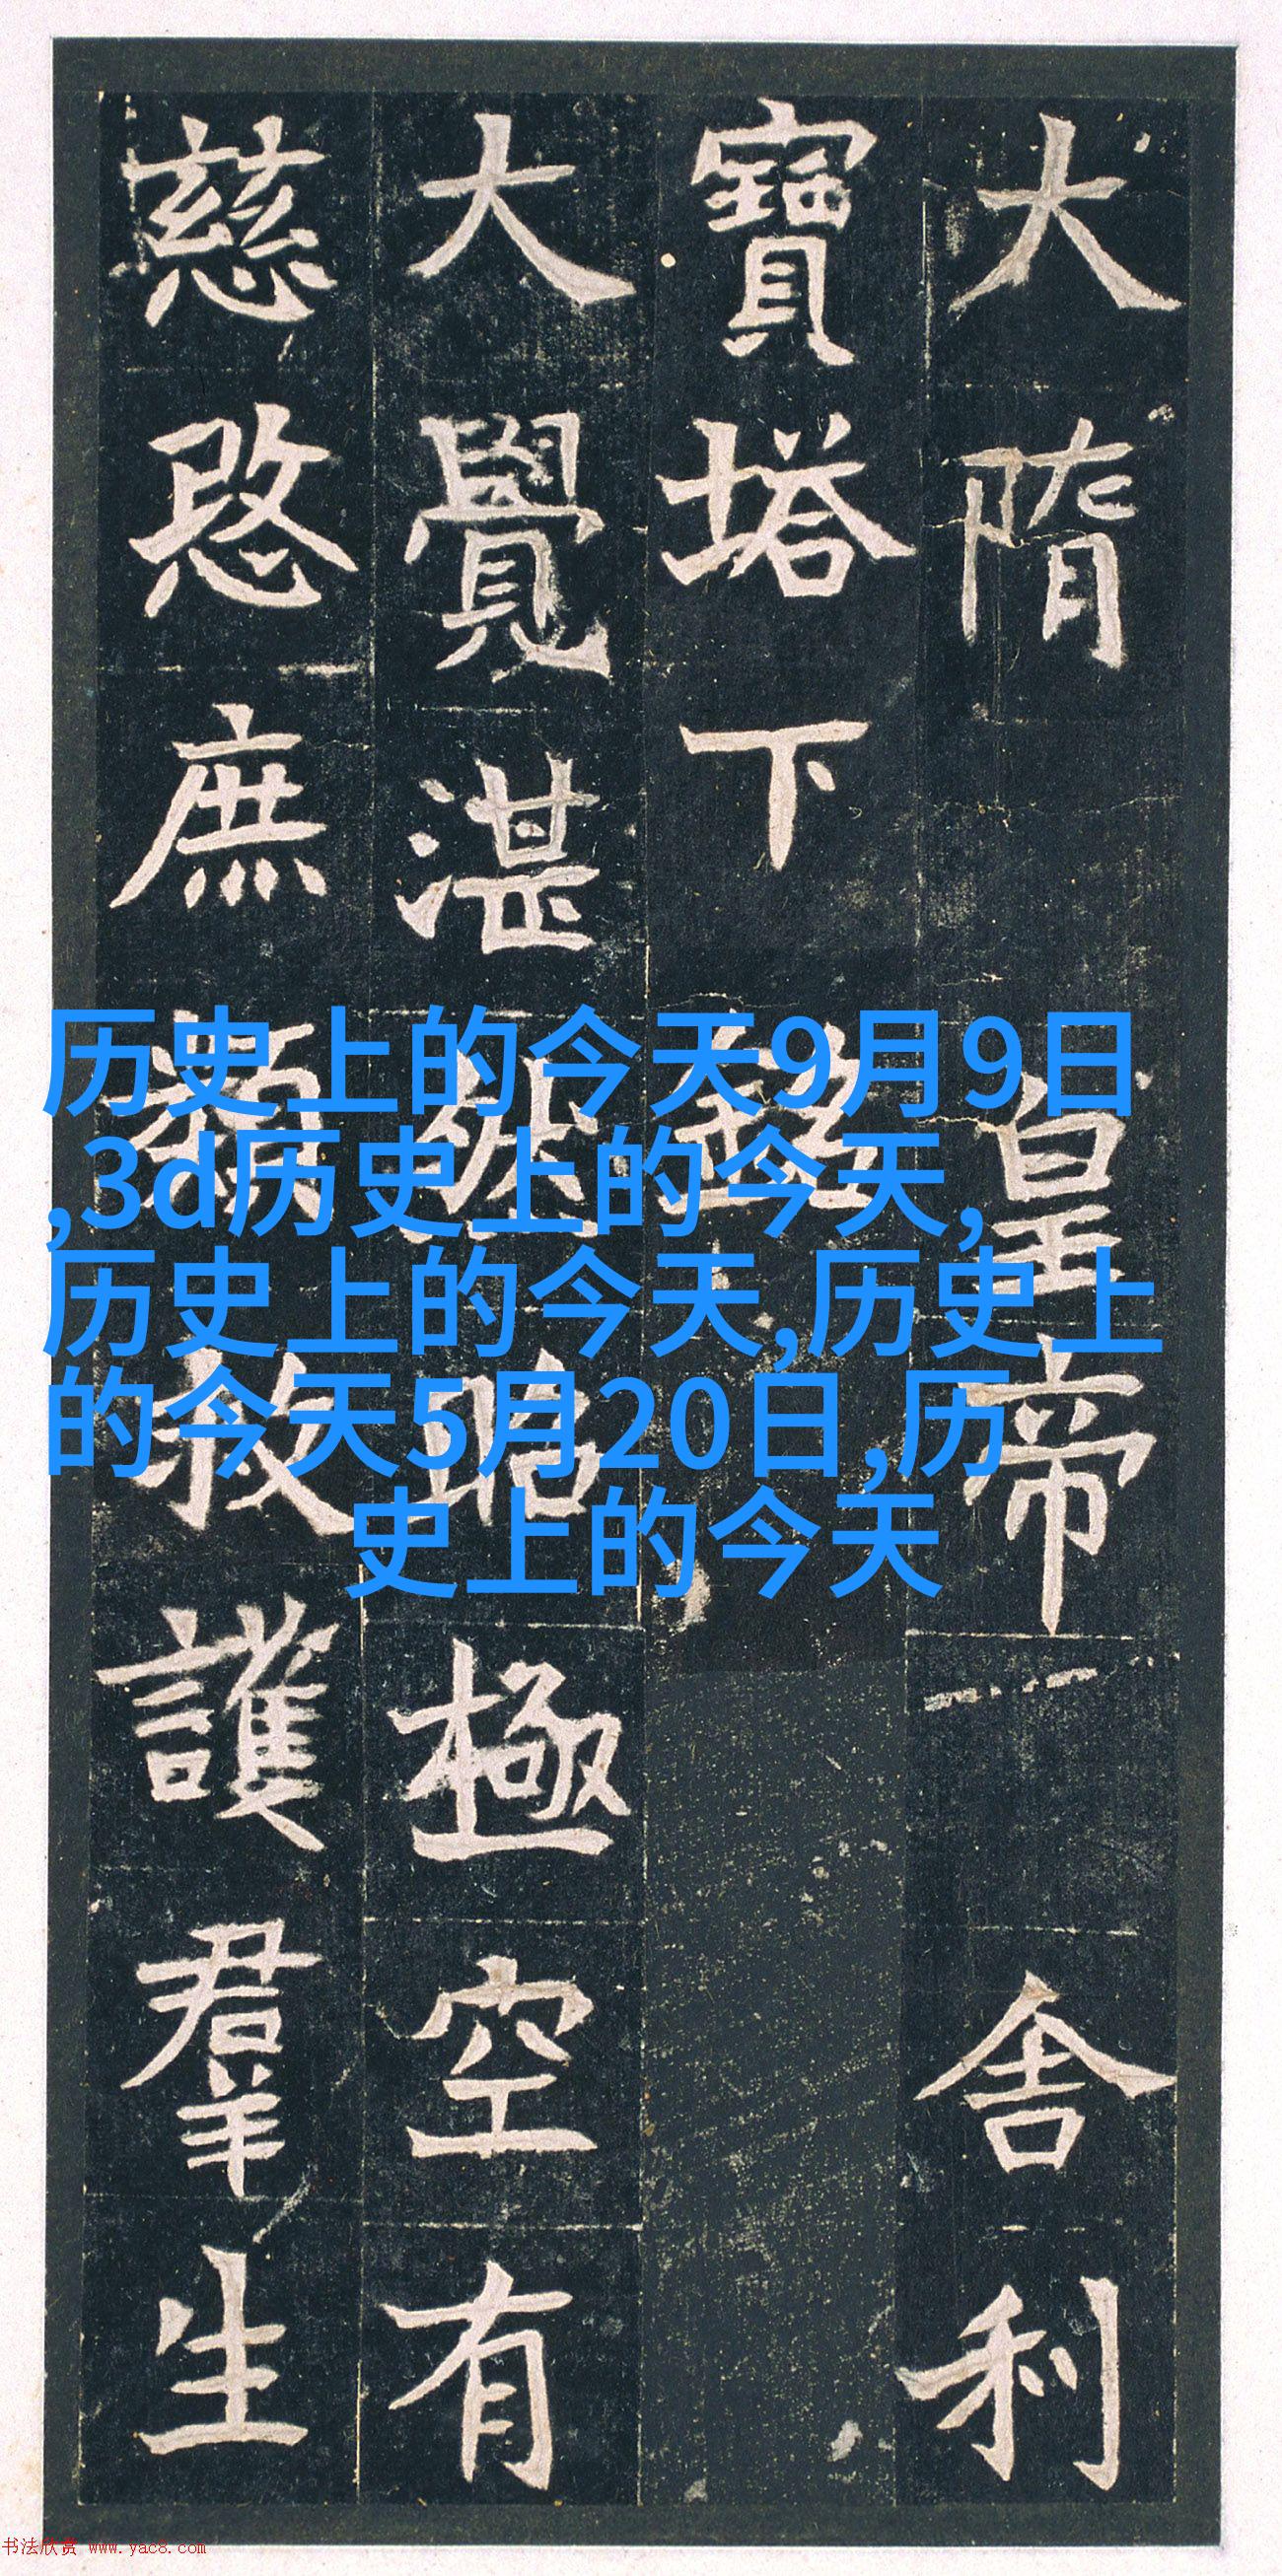 大隋皇帝舍利
寶塔下銘
大覺湛然昭極空有
慈愍庶類救護羣生
历史上的今天9月9日
,3d历史上的今天,
历史上的今天,历史上
的今天5月20日,历
史上的今天
书法欣赏 www.yac8.com